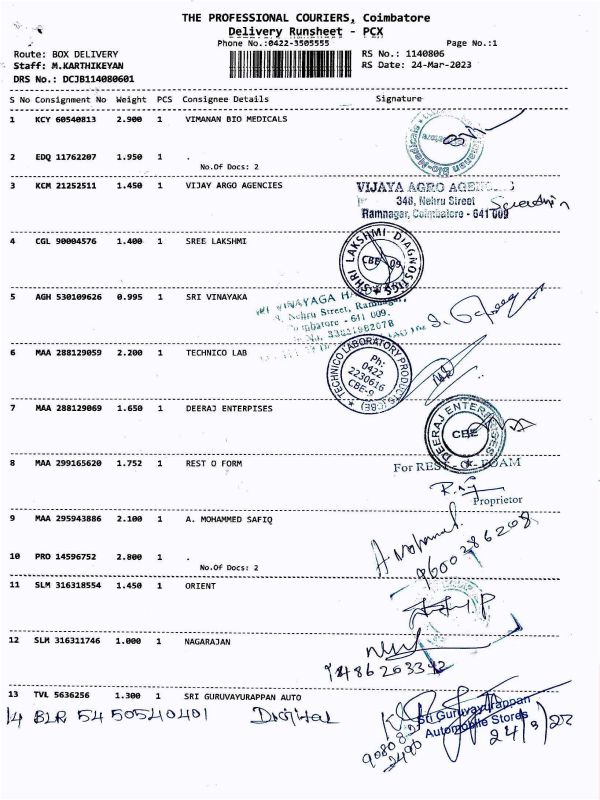 THE PROFESSIONAL COURIERS, Coimbatore
Delivery Runsheet - PCX
Phone No.:0422-3505555
Page No.:1
Route: BOX DELIVERY
RS No.: 1140806
Staff: M.KARTHIKEYAN
RS Date: 24-Mar-2023
DRS No.: DCJB114080601
S No Consignment No Weight PCS Consignee Details Signature
1 KCY 60540813 2.900 1 VIMANAN BIO MEDICALS
2 EDQ 11762207 1.950 1 .
No.Of Docs: 2
3 KCM 21252511 1.450 1 VIJAY ARGO AGENCIES
VIJAYA AGRO
348, Nehru Street
Ramnagar, Coimbatore - 641 009
4 CGL 90004576 1.400 1 SREE LAKSHMI
SHRI LAKSHMI DIAGNOSTICS
CBE - 09
5 AGH 530109626 0.995 1 SRI VINAYAKA
VINAYAGA
Nehru Street, Ramnagar,
Coimbatore - 641 009.
6 MAA 288129059 2.200 1 TECHNICO LAB
TECHNICO LABORATORY PRODUCTS (CBE)
Ph:
0422
2230616
CBE-9
7 MAA 288129069 1.650 1 DEERAJ ENTERPISES
DEERAJ ENTERPRISES
CBE
8 MAA 299165620 1.752 1 REST O FORM
For REST - O - FOAM
Proprietor
9 MAA 295943886 2.100 1 A. MOHAMMED SAFIQ
A Mohamed
9600286208
10 PRO 14596752 2.800 1 .
No.Of Docs: 2
11 SLM 316318554 1.450 1 ORIENT
12 SLM 316311746 1.000 1 NAGARAJAN
9486203392
13 TVL 5636256 1.300 1 SRI GURUVAYURAPPAN AUTO
14 BLR 5450540401 Digital
Sri Guruvayurappan
Automobile Stores